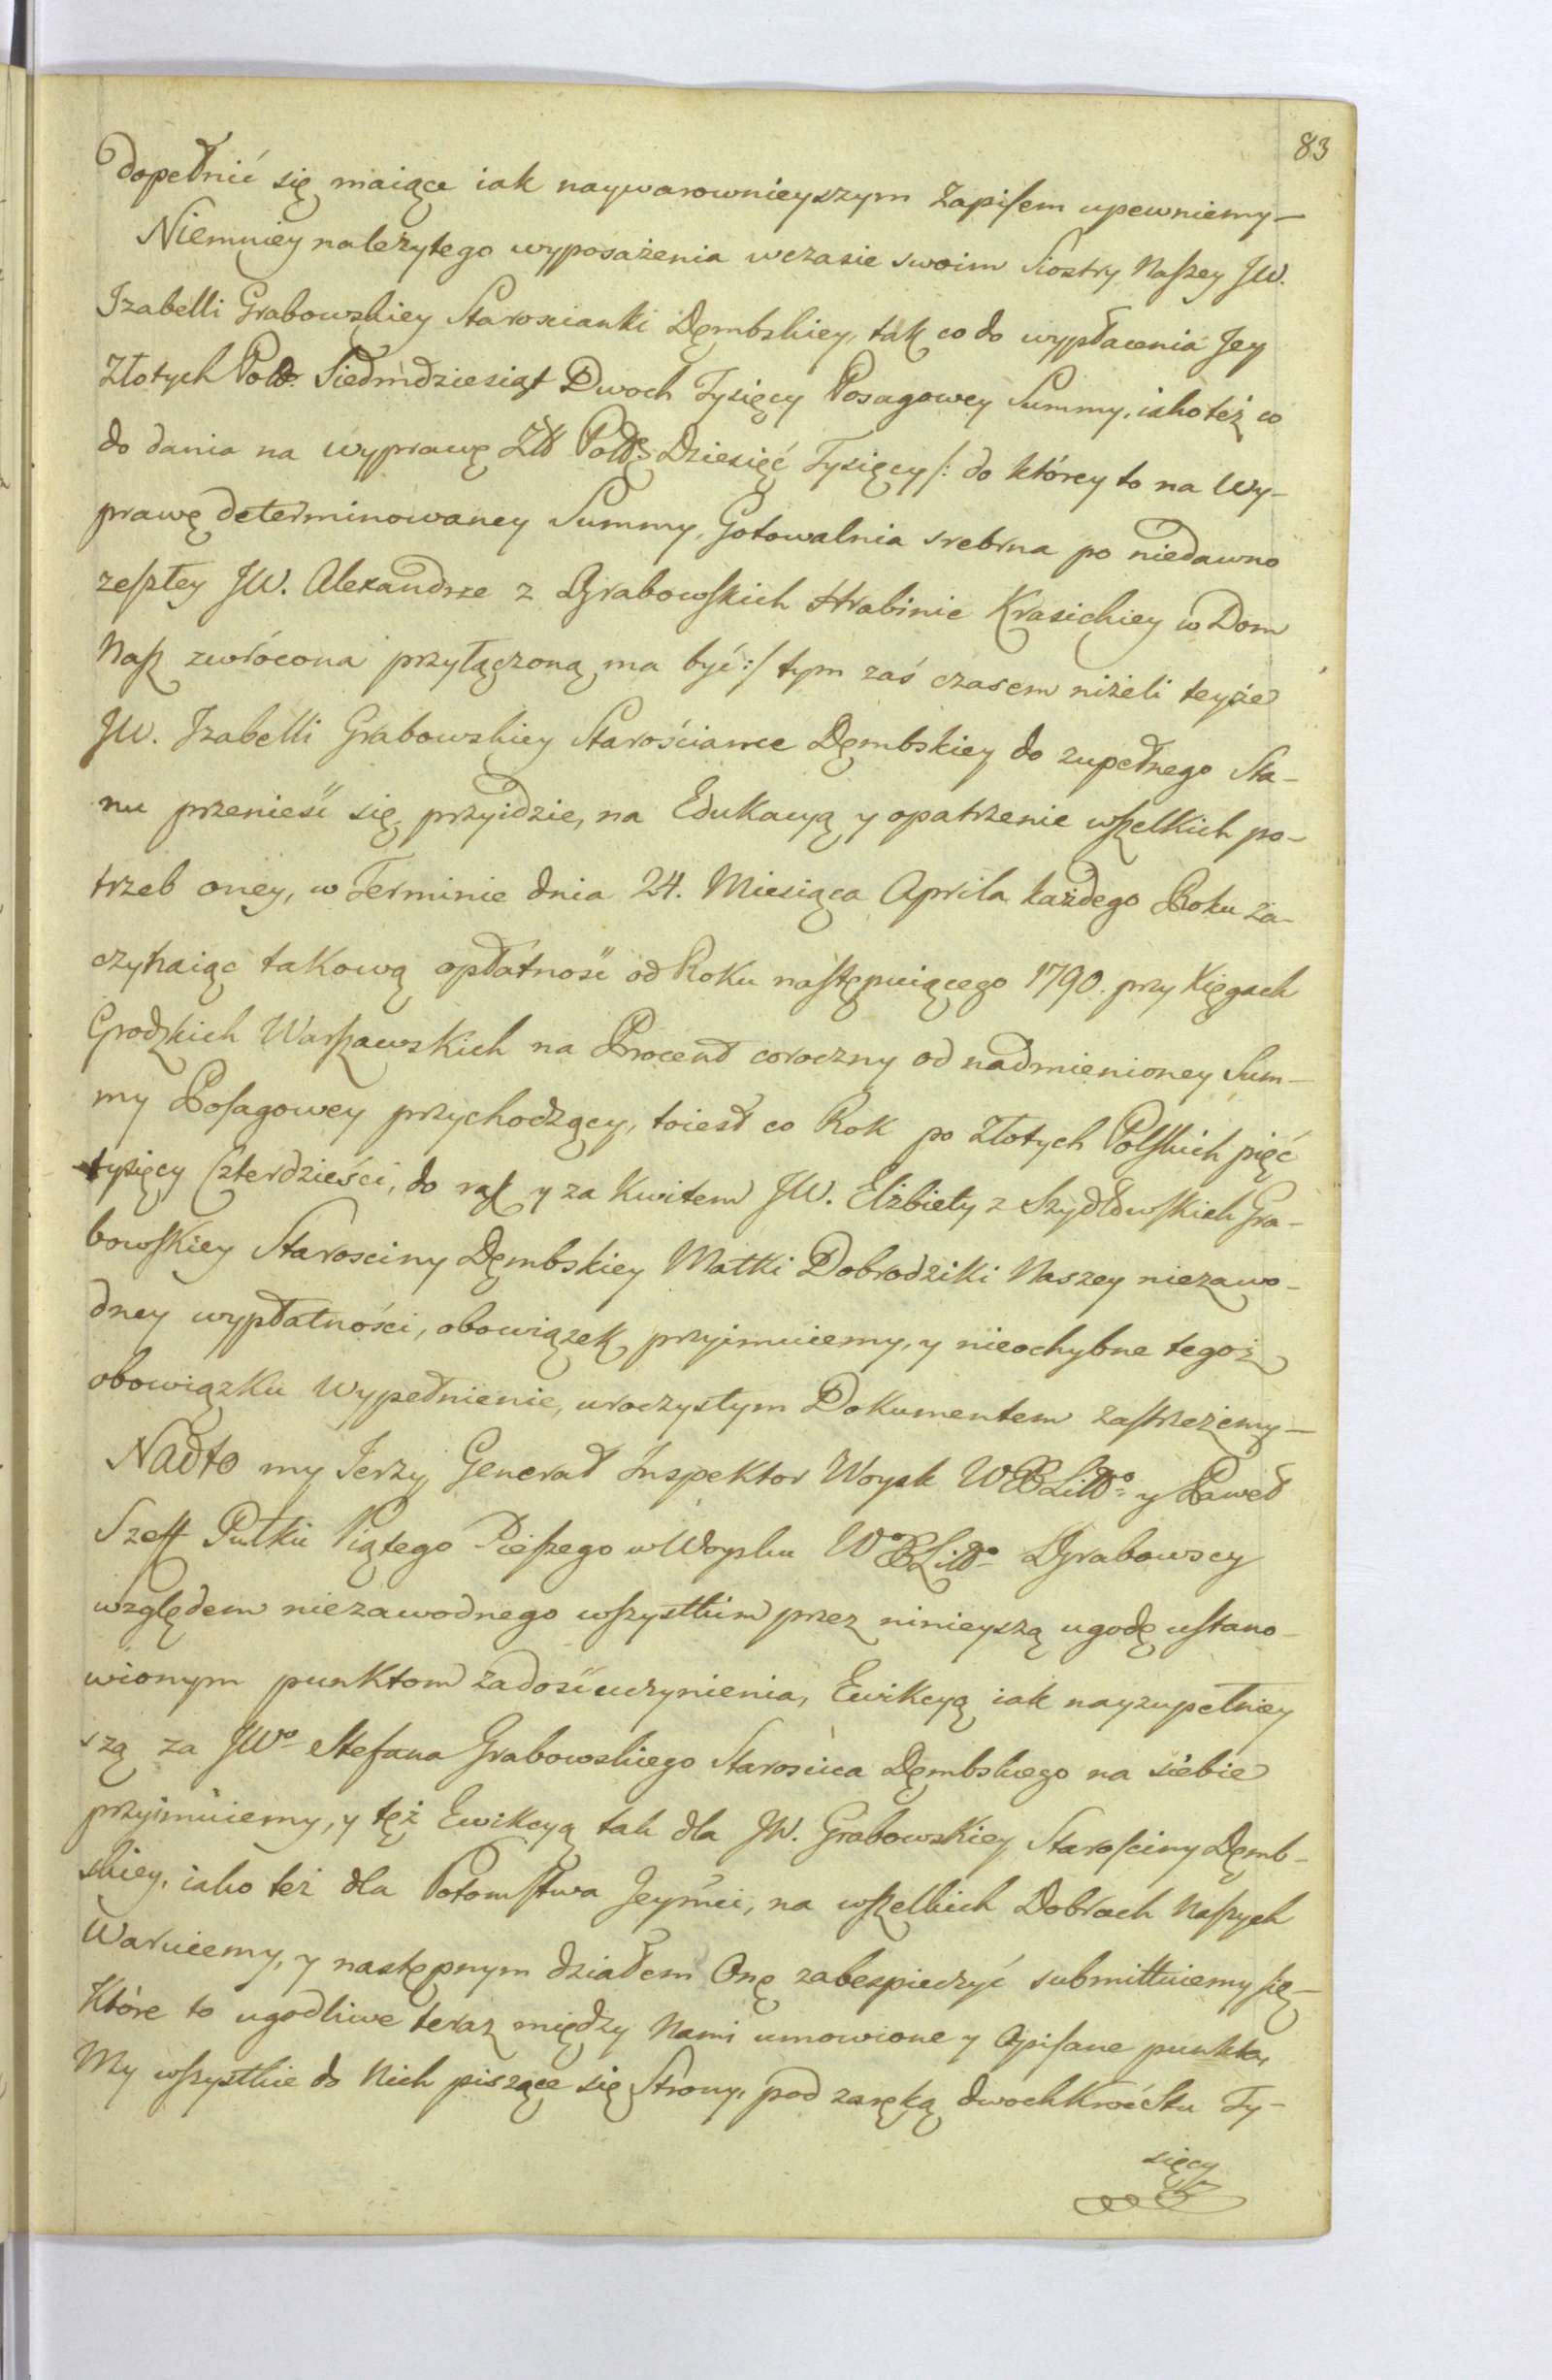 83
dopełnić się maiące iak naywarownieyszym Zapisem upewniemy —
Niemniey należytego wyposażenia wczasie swoim Siostry Naszey JW.
Izabelli Grabowskiey Starościanki Dęmbskiey, tak co do wypłacenia Jey
Złotych Pol. Siedmdziesiąt Dwoch Tysięcy Posagowey Summy, iako też co
do dania na wyprawę Zł Pol Dziesięć Tysięcy /: do którey to na Wy-
prawę determinowaney Summy, Gotowalnia srebrna po niedawno
zeszłey JW. Alexandrze z Grabowskich Hrabinie Krasickiey w Dom
Nasz zwrócona przyłączoną ma być :/ tym zaś czasem niżeli teyże
JW. Izabelli Grabowskiey Starościance Dęmbskiey do zupełnego Sta-
nu przenieść się przyidzie, na Edukacyą y opatrzenie wszelkich po-
trzeb oney, w Terminie dnia 24. Miesiąca Aprila każdego Roku za-
czynaiąc takową opłatność od Roku następuiącego 1790. przy Xięgach
Grodzkich Warszawskich na Procent coroczny od nadmienioney Sum-
my Posagowey przychodzący, toiest co Rok po Złotych Polskich pięć
tysięcy Czterdzieści, do rąk y za Kwitem JW. Elżbiety z Szydłowskich Gra-
bowskiey Starościny Dęmbskiey Matki Dobrodziki Naszey niezawo-
dney wypłatności, obowiązek przyimuiemy, y nieochybne tegoż
obowiązku Wypełnienie, uroczystym Dokumentem zastrzeżemy —
Nadto my Jerzy Generał Inspektor Woysk WXLitt° y Paweł
Szeff Pułku Piątego Pieszego w Woysku W°XLitt° Grabowscy
względem niezawodnego wszystkim przez ninieyszą ugodę ustano-
wionym punktom zadość uczynienia, Ewikcyą iak nayzupełniey
szą za JW° Stefana Grabowskiego Starościca Dęmbskiego na siebie
przyimuiemy, y tęż Ewikcyą tak dla JW. Grabowskiey Starościny Dęmb-
skiey, iako też dla Potomstwa Jeymci, na wszelkich Dobrach Naszych
Waruiemy, y następnym działem Onę zabespieczyć submittuiemy się —
Które to ugodliwe teraz między Nami umowione y Opisane punkta,
My wszystkie do Nich piszące się Strony, pod zaręką dwochKroć Stu Ty-
sięcy